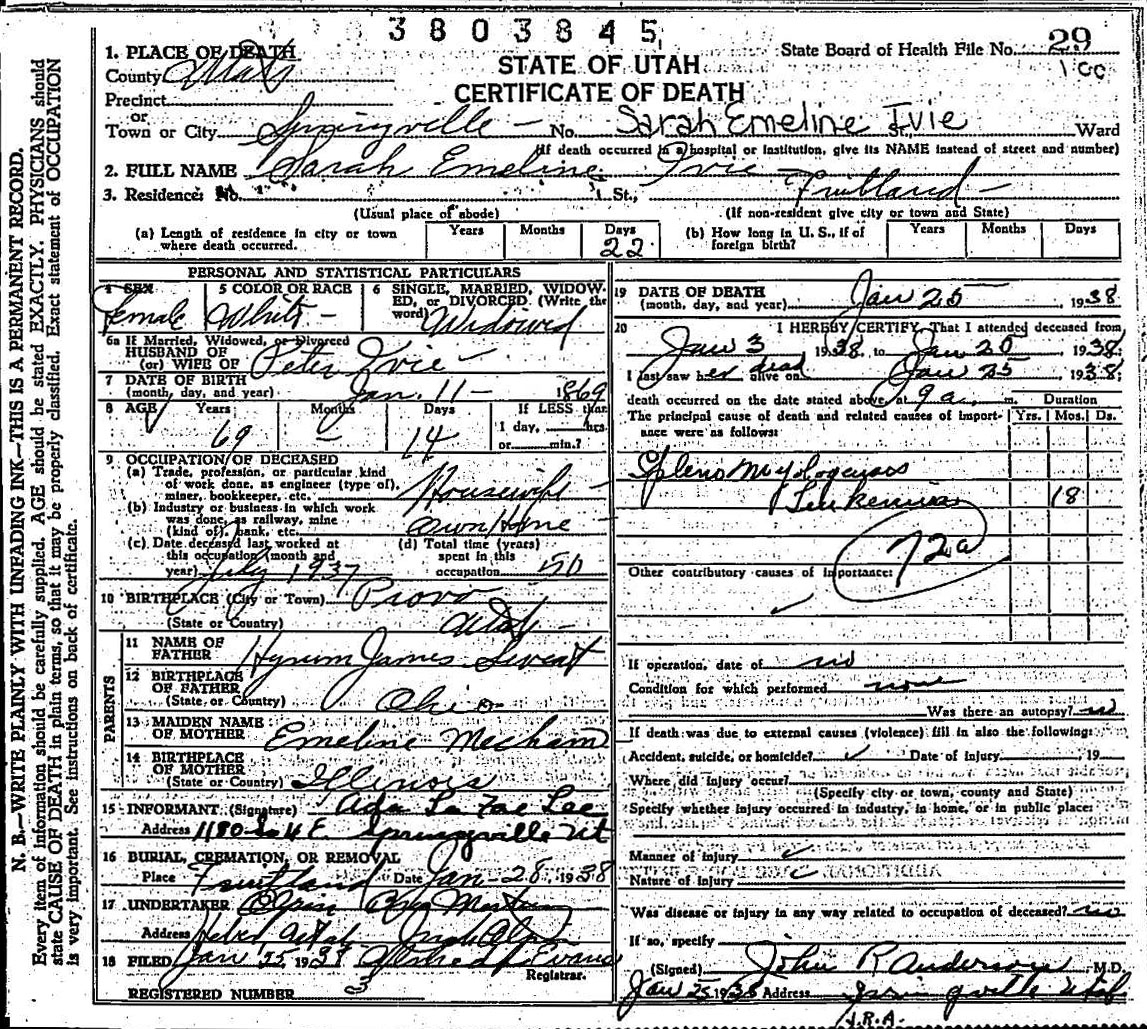 3803845
State Board of Health File No. 29
100
STATE OF UTAH
CERTIFICATE OF DEATH
1. PLACE OF DEATH
County Utah
Precinct
or
Town or City Springville — No. Sarah Emeline Ivie St., Ward
(If death occurred in a hospital or institution, give its NAME instead of street and number)
2. FULL NAME Sarah Emeline Ivie
3. Residence: No. St., Fruitland —
(Usual place of abode) (If non-resident give city or town and State)
(a) Length of residence in city or town where death occurred. Years Months Days 22
(b) How long in U. S., if of foreign birth? Years Months Days
PERSONAL AND STATISTICAL PARTICULARS
4 SEX Female
5 COLOR OR RACE White —
6 SINGLE, MARRIED, WIDOWED, or DIVORCED. (Write the word) Widowed
6a If Married, Widowed, or Divorced
HUSBAND OF
(or) WIFE OF Peter Ivie —
7 DATE OF BIRTH
(month, day, and year) Jan. 11 — 1869
8 AGE Years 69 Months — Days 14 If LESS than 1 day, hrs. or min.?
9 OCCUPATION OF DECEASED
(a) Trade, profession, or particular kind of work done, as engineer (type of), miner, bookkeeper, etc. Housewife —
(b) Industry or business in which work was done, as railway, mine (kind of), bank, etc. Own Home —
(c) Date deceased last worked at this occupation (month and year) July 1937
(d) Total time (years) spent in this occupation 50
10 BIRTHPLACE (City or Town) Provo
(State or Country) Utah —
PARENTS
11 NAME OF FATHER Hyrum James Sweat
12 BIRTHPLACE OF FATHER
(State or Country) Ohio
13 MAIDEN NAME OF MOTHER Emeline Mecham
14 BIRTHPLACE OF MOTHER
(State or Country) Illinois
15 INFORMANT (Signature) Ada La Zae Lee
Address 1180 So 4 E. Springville Ut
16 BURIAL, CREMATION, OR REMOVAL
Place Fruitland Date Jan — 28, 1938
17 UNDERTAKER
Address Heber Utah
18 FILED Jan 25, 1938 Alfred L Evans
Registrar.
REGISTERED NUMBER 3
19 DATE OF DEATH
(month, day, and year) Jan 25 1938
20 I HEREBY CERTIFY, That I attended deceased from
Jan 3 1938, to Jan 20 1938,
I last saw her dead alive on Jan 25 1938;
death occurred on the date stated above, at 9 a. m. Duration
The principal cause of death and related causes of importance were as follows: Yrs. Mos. Ds.
Spleno Myelogenous
Leukemia 18
72a
Other contributory causes of importance:
If operation, date of no
Condition for which performed none
Was there an autopsy? no
If death was due to external causes (violence) fill in also the following:
Accident, suicide, or homicide? ✓ Date of injury , 19
Where did injury occur?
(Specify city or town, county and State)
Specify whether injury occurred in industry, in home, or in public place:
Manner of injury ✓
Nature of injury ✓
Was disease or injury in any way related to occupation of deceased? no
If so, specify
(Signed) John R Anderson M.D.
Jan 25 1938 Address Springville Utah
J.R.A.
N. B.—WRITE PLAINLY WITH UNFADING INK—THIS IS A PERMANENT RECORD.
Every item of information should be carefully supplied. AGE should be stated EXACTLY. PHYSICIANS should
state CAUSE OF DEATH in plain terms, so that it may be properly classified. Exact statement of OCCUPATION
is very important. See instructions on back of certificate.